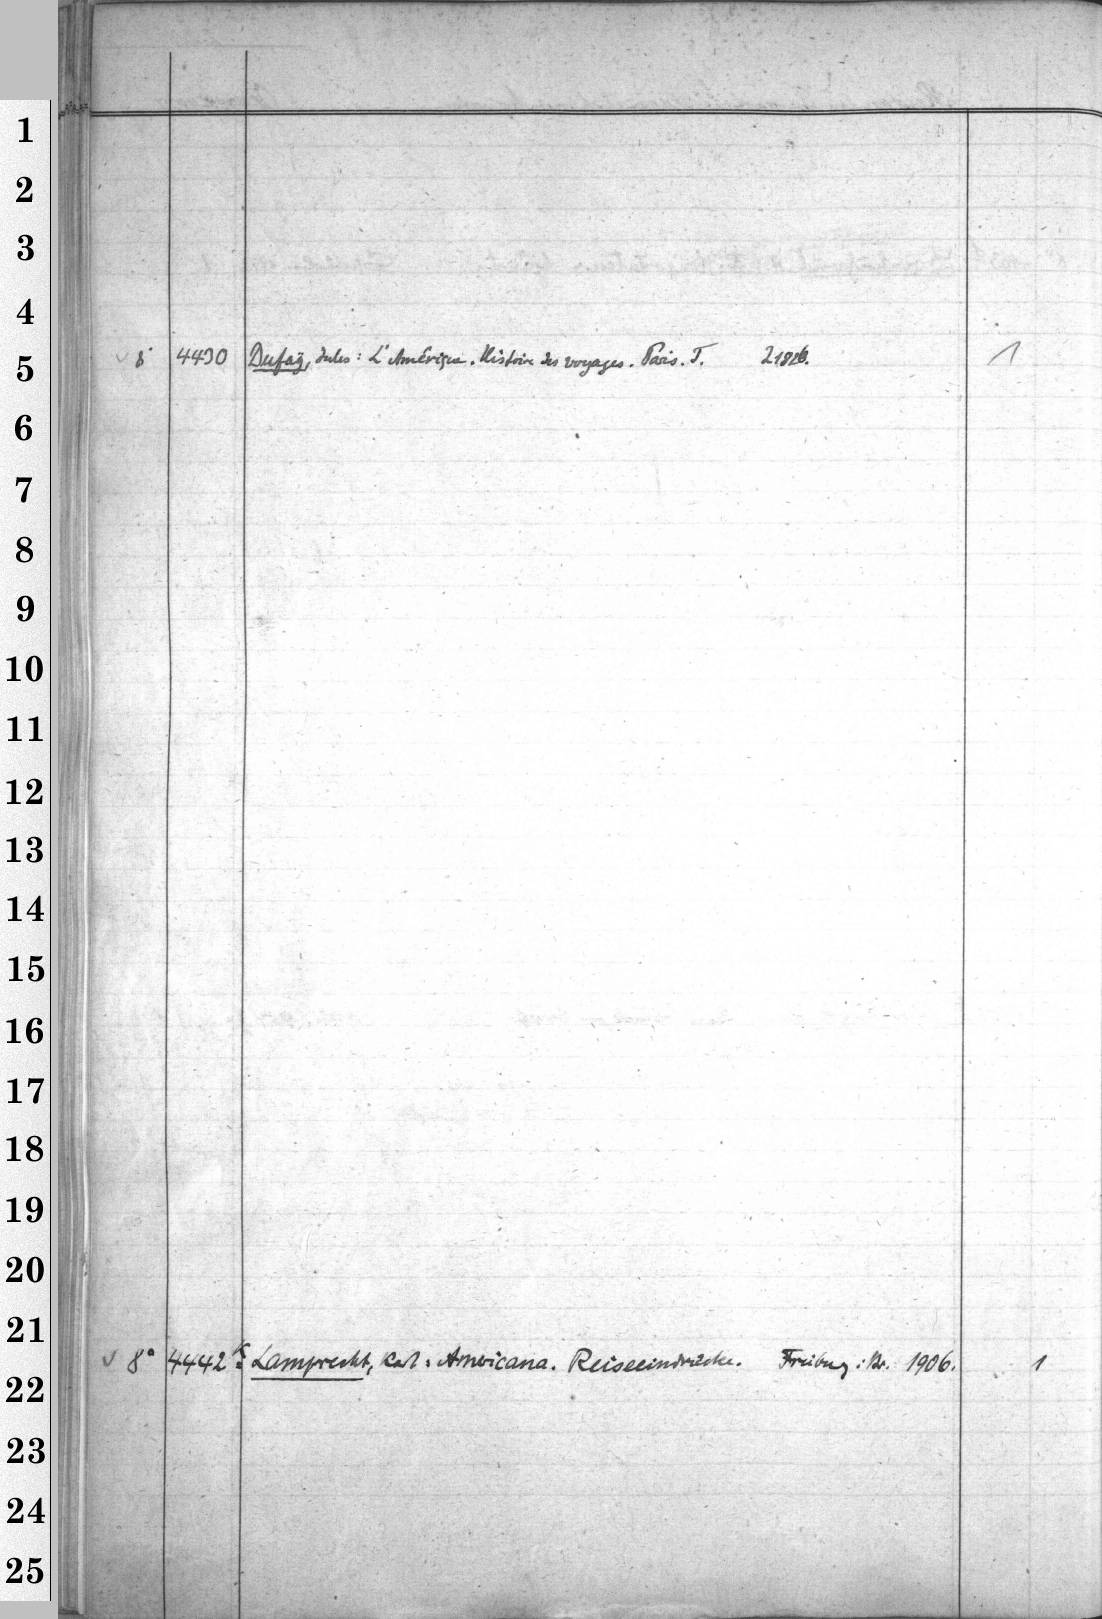 1
2
3
4
v 8° 4430 Dufaÿ, Jules: L'Amérique. Histoire des voyages. Paris. T. 2 1826. 1
5
6
7
8
9
10
11
12
13
14
15
16
17
18
19
20
21
v 8° 4442 k Lamprecht, Karl: Americana. Reiseeindrücke. Freiburg i Br. 1906. 1
22
23
24
25